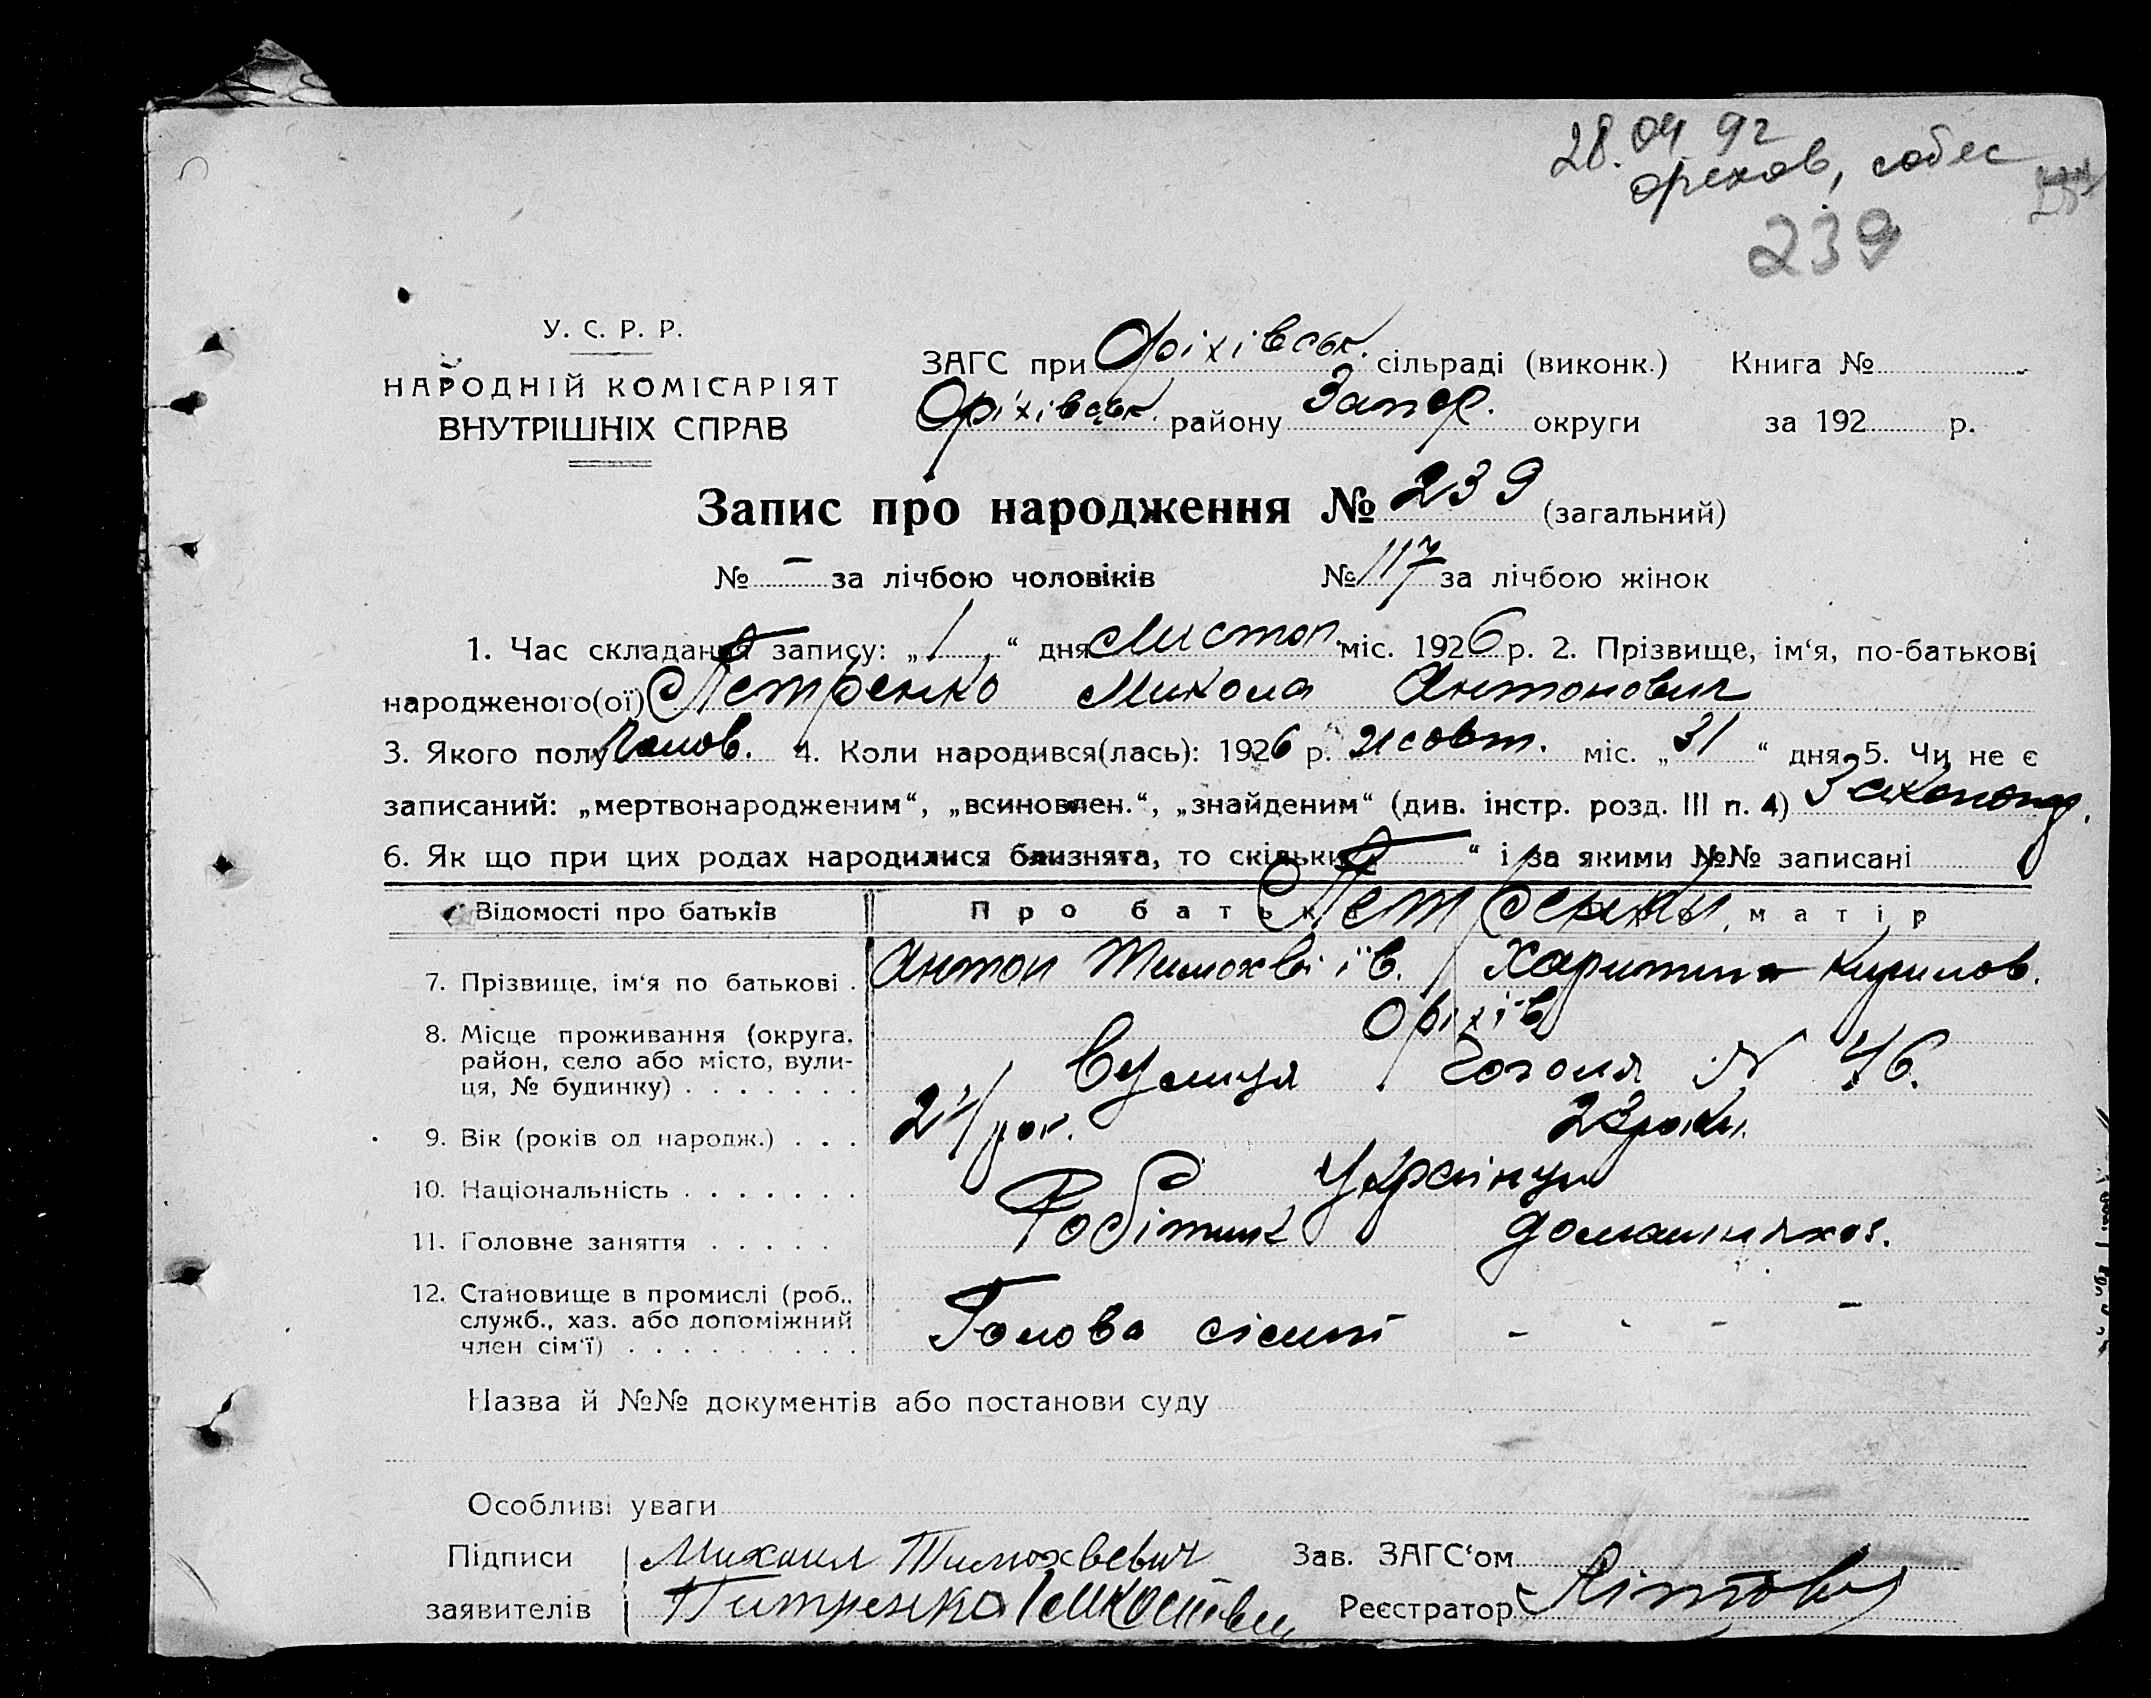 28.04 92
орехов, собес
239
У. С. Р. Р.
НАРОДНІЙ КОМІСАРІЯТ
ВНУТРІШНІХ СПРАВ
ЗАГС при Оріхівськ. сільраді (виконк.) Книга №
Оріхівськ. району Запор. округи за 192 р.
Запис про народження № 239 (загальний)
№ – за лічбою чоловіків № 117 за лічбою жінок
1. Час складання запису: „ 1 “ дня Листоп. міс. 1926 р. 2. Прізвище, ім‘я, по-батькові
народженого(ої) Петренко Микола Антонович
3. Якого полу Чолов. 4. Коли народився(лась): 1926 р. жовт. міс. „ 31 “ дня 5. Чи не є
записаний: „мертвонародженим“, „всиновлен.“, „знайденим“ (див. інстр. розд. III п. 4)
6. Як що при цих родах народилися близнята, то скільки “ і за якими №№ записані
Відомості про батьків Про батька Петренки матір
7. Прізвище, ім‘я по батькові . Антон Тимохвіїв. Харитина Кирилов.
Оріхів
8. Місце проживання (округа,
район, село або місто, вули-
ця, № будинку) . . . . . . . Вулиця Гоголя № 46.
9. Вік (років од народж.) . . . 24 рок. 23 роки.
10. Національність . . . . . . . Українци
11. Головне заняття . . . . . Робітник домашня хоз.
12. Становище в промислі (роб.,
служб., хаз. або допоміжний
член сім‘ї) . . . . . . . . . Голова сісиї - - - –
Назва й №№ документів або постанови суду
Особливі уваги
Підписи Михаил Тимохвевич Зав. ЗАГС‘ом
заявителів Питренко Реєстратор